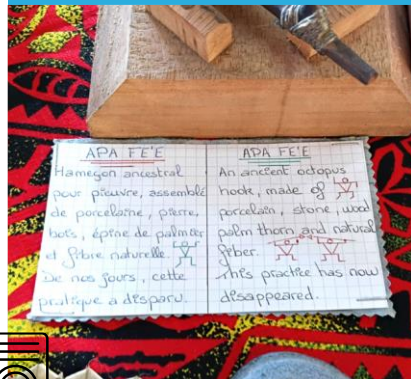 APA FE'E
Hameçon ancestral
pour pieuvre, assemblé
de porcelaine, pierre,
bois, épine de palmier
et fibre naturelle.
De nos jours, cette
pratique a disparu.
APA FE'E
An ancient octopus
hook, made of
porcelain, stone, wood
palm thorn and natural
fiber.
This practice has now
disappeared.